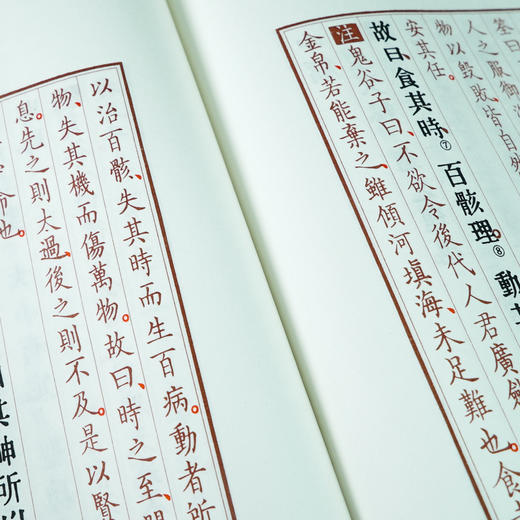 曰
人之服御
物以毀敗、皆自然
安其任。
故曰、食其時、⑦百骸理。⑧動
注鬼谷子曰、不欲令後代人君廣斂
金帛、若能棄之、雖傾河填海、未足難也。食
以治百骸、失其時而生百病。動者所
物、失其機而傷萬物。故曰、時之至、間
息。先之則太過、後之則不及。是以賢
命也。
其神所以